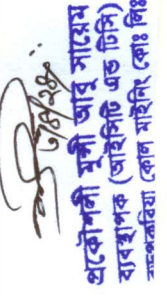 প্রকৌশলী মুন্সী আবু সায়েম
ব্যবস্থাপক (আইসিটি এন্ড টিসি)
কোল মাইনিং কোঃ লিঃ